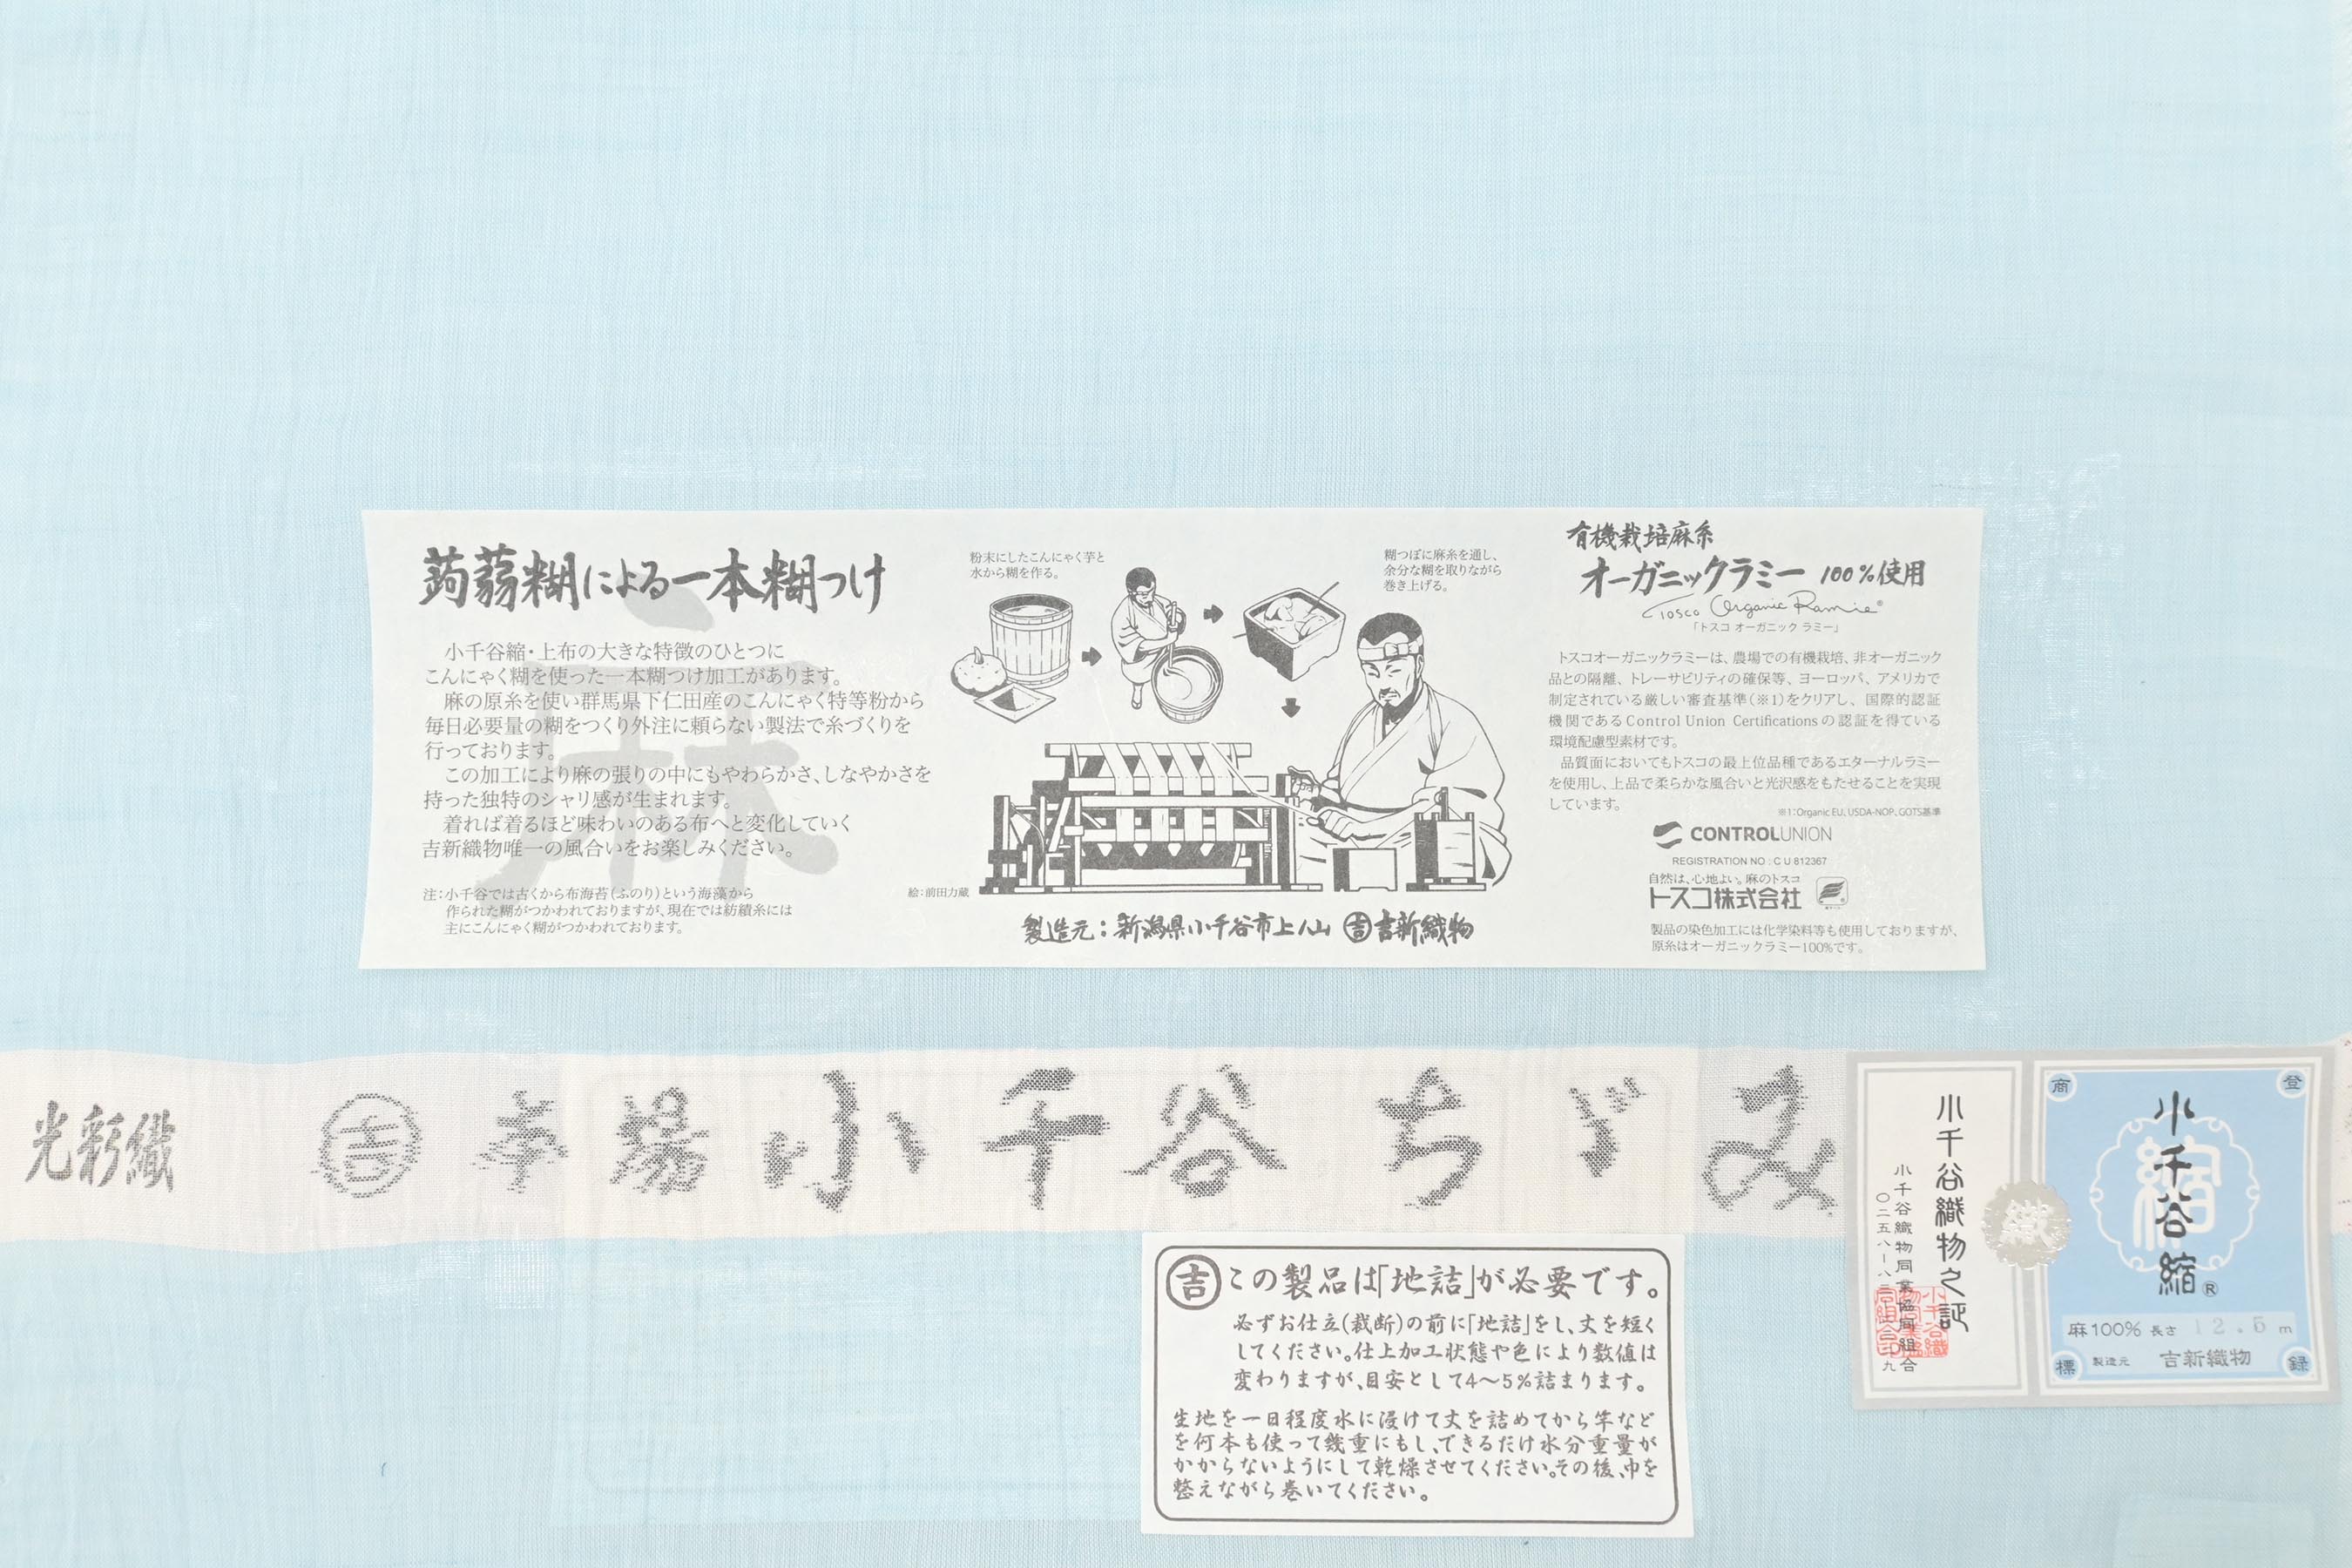 蒟蒻糊による一本糊つけ
小千谷縮・上布の大きな特徴のひとつに
こんにゃく糊を使った一本糊つけ加工があります。
麻の原糸を使い群馬県下仁田産のこんにゃく特等粉から
毎日必要量の糊をつくり外注に頼らない製法で糸づくりを
行っております。
この加工により麻の張りの中にもやわらかさ、しなやかさを
持った独特のシャリ感が生まれます。
着れば着るほど味わいのある布へと変化していく
吉新織物唯一の風合いをお楽しみください。
注:小千谷では古くから布海苔(ふのり)という海藻から
作られた糊がつかわれておりますが、現在では紡績糸には
主にこんにゃく糊がつかわれております。
麻
粉末にしたこんにゃく芋と
水から糊を作る。
糊つぼに麻糸を通し、
余分な糊を取りながら
巻き上げる。
絵:前田力蔵
製造元:新潟県小千谷市上ノ山 吉 吉新織物
有機栽培麻糸
オーガニックラミー 100%使用
Tosco Organic Ramie®
「トスコ オーガニック ラミー」
トスコオーガニックラミーは、農場での有機栽培、非オーガニック
品との隔離、トレーサビリティの確保等、ヨーロッパ、アメリカで
制定されている厳しい審査基準(※1)をクリアし、国際的認証
機関であるControl Union Certificationsの認証を得ている
環境配慮型素材です。
品質面においてもトスコの最上位品種であるエターナルラミー
を使用し、上品で柔らかな風合いと光沢感をもたせることを実現
しています。
※1:Organic EU, USDA-NOP, GOTS基準
CONTROLUNION
REGISTRATION NO : C U 812367
自然は、心地よい。麻のトスコ
トスコ株式会社
製品の染色加工には化学染料等も使用しておりますが、
原糸はオーガニックラミー100%です。
光彩織 吉 本場小千谷ちぢみ
小千谷織物之証
小千谷織物同業協同組合
織
商
登
縮
小千谷縮®
麻100% 長さ 12.5 m
標 製造元 吉新織物 録
吉 この製品は「地詰」が必要です。
必ずお仕立(裁断)の前に「地詰」をし、丈を短く
してください。仕上加工状態や色により数値は
変わりますが、目安として4〜5%詰まります。
生地を一日程度水に浸けて丈を詰めてから竿など
を何本も使って幾重にもし、できるだけ水分重量が
かからないようにして乾燥させてください。その後、巾を
整えながら巻いてください。